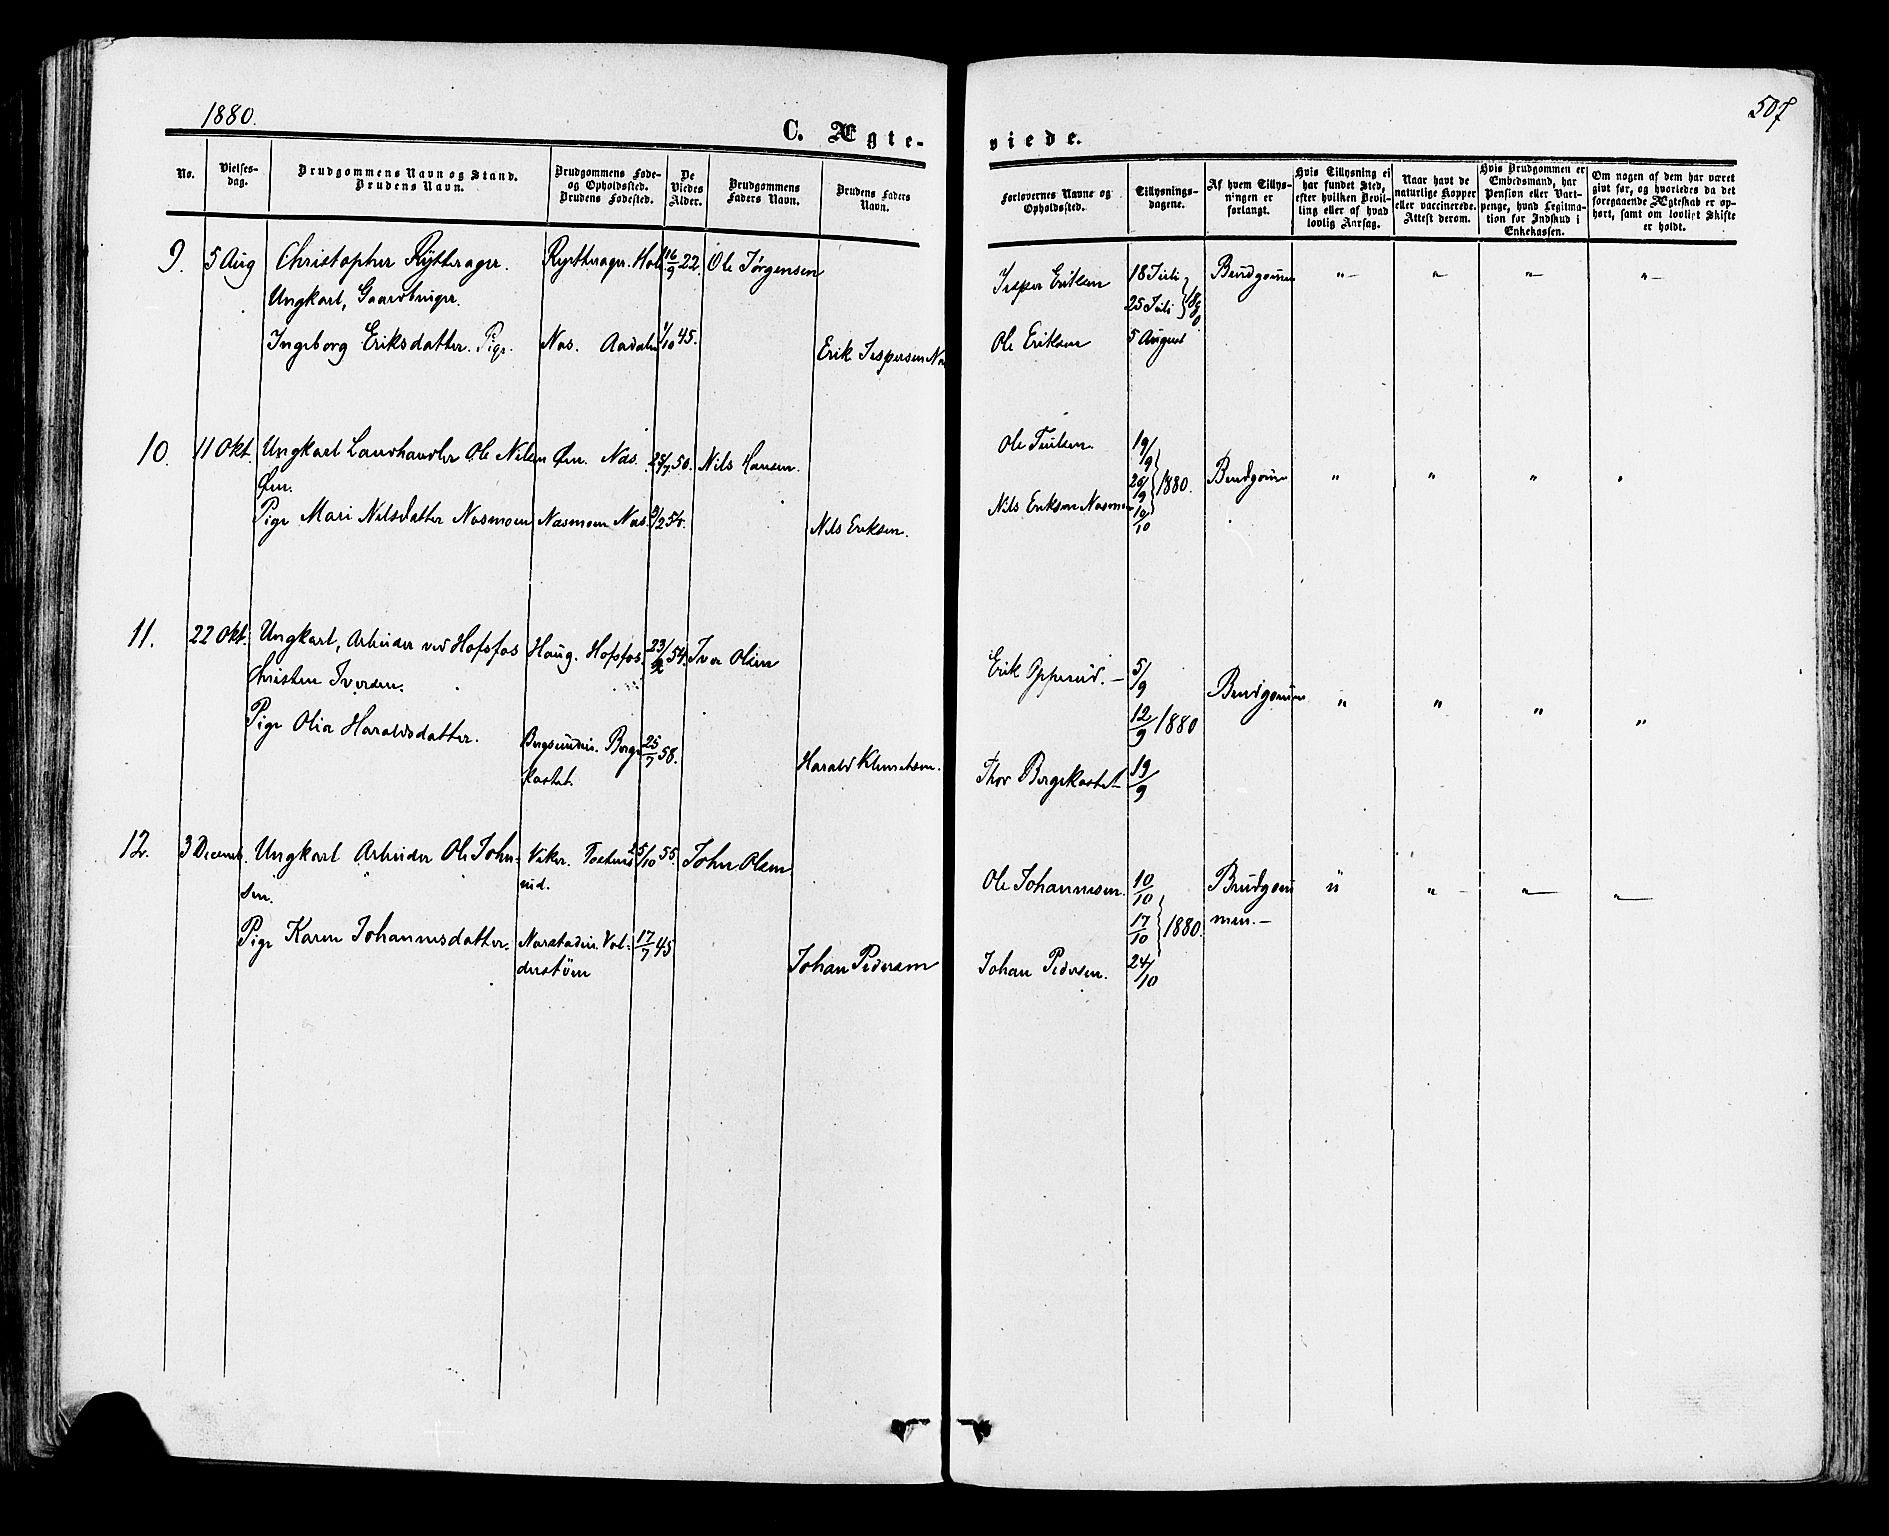 1880.
507
C. Ægte-
viede.
No.
Vielses-
dag.
Brudgommens Navn og Stand.
Brudens Navn.
Brudgommens Føde-
og Opholdssted.
Brudens Fødested.
De
Viedes
Alder.
Brudgommens
Faders Navn.
Brudens Faders
Navn.
Forlovernes Navne og
Opholdssted.
Tillysnings-
dagene.
Af hvem Tillys-
ningen er
forlangt.
Hvis Tillysning ei
har fundet Sted,
efter hvilken Bevil-
ling eller af hvad
lovlig Aarsag.
Naar havt de
naturlige Kopper
eller vaccinerede.
Attest derom.
Hvis Brudgommen er
Embedsmand, har
Pension eller Vart-
penge, hvad Legitima-
tion for Indskud i
Enkekassen.
Om nogen af dem har været
givt før, og hvorledes da det
foregaaende Ægteskab er op-
hørt, samt om lovligt Skifte
er holdt.
9. 5 Aug Christopher Rytterager. Rytterager. Hol 16/9 22. Ole Jørgensen
Ungkarl, Gaardbruger.
Ingeborg Eriksdatter. Pige. Næs. Aadalen 1/10 45. Erik Jespersen Næs
Jesper Eriksen 18 Juli Brudgommen " " " "
25 Juli } 1880
Ole Eriksen 5 August
10. 11 Okt. Ungkarl Landhandler Ole Nilsen Øen. Næs. 50. Nils Hansen.
Øen.
Pige Mari Nilsdatter Næsmoen Næsmoen Næs. 9/2 54. Nils Eriksen.
Ole 19/9 Brudgommen " " " "
26/9 } 1880.
Nils Eriksen Næsmoen 10/10
11. 22 Okt. Ungkarl, Arbeider ved Hofsfos Haug. Hofsfos 54. Iver Olsen
Christen Iversen.
Pige Olia Haraldsdatter. Bergsundeie. Berge- 25/7 58. Harald Klemetsen.
kastet.
Erik Opperud. 5/9 Brudgommen " " " "
12/9 1880
Thor Bergekastet 19/9
12. 3 Decemb. Ungkarl Arbeider Ole John- Viker. Tostens- 25/10 55. John Olsen
sen. rud.
Pige Karen Johannesdatter. Næsstadeie. Val- 17/7 45 Johan Pedersen
derstøen
Ole Johannesen. 10/10 Brudgom- " " " "
17/10 } 1880. men.
Johan Pedersen. 24/10